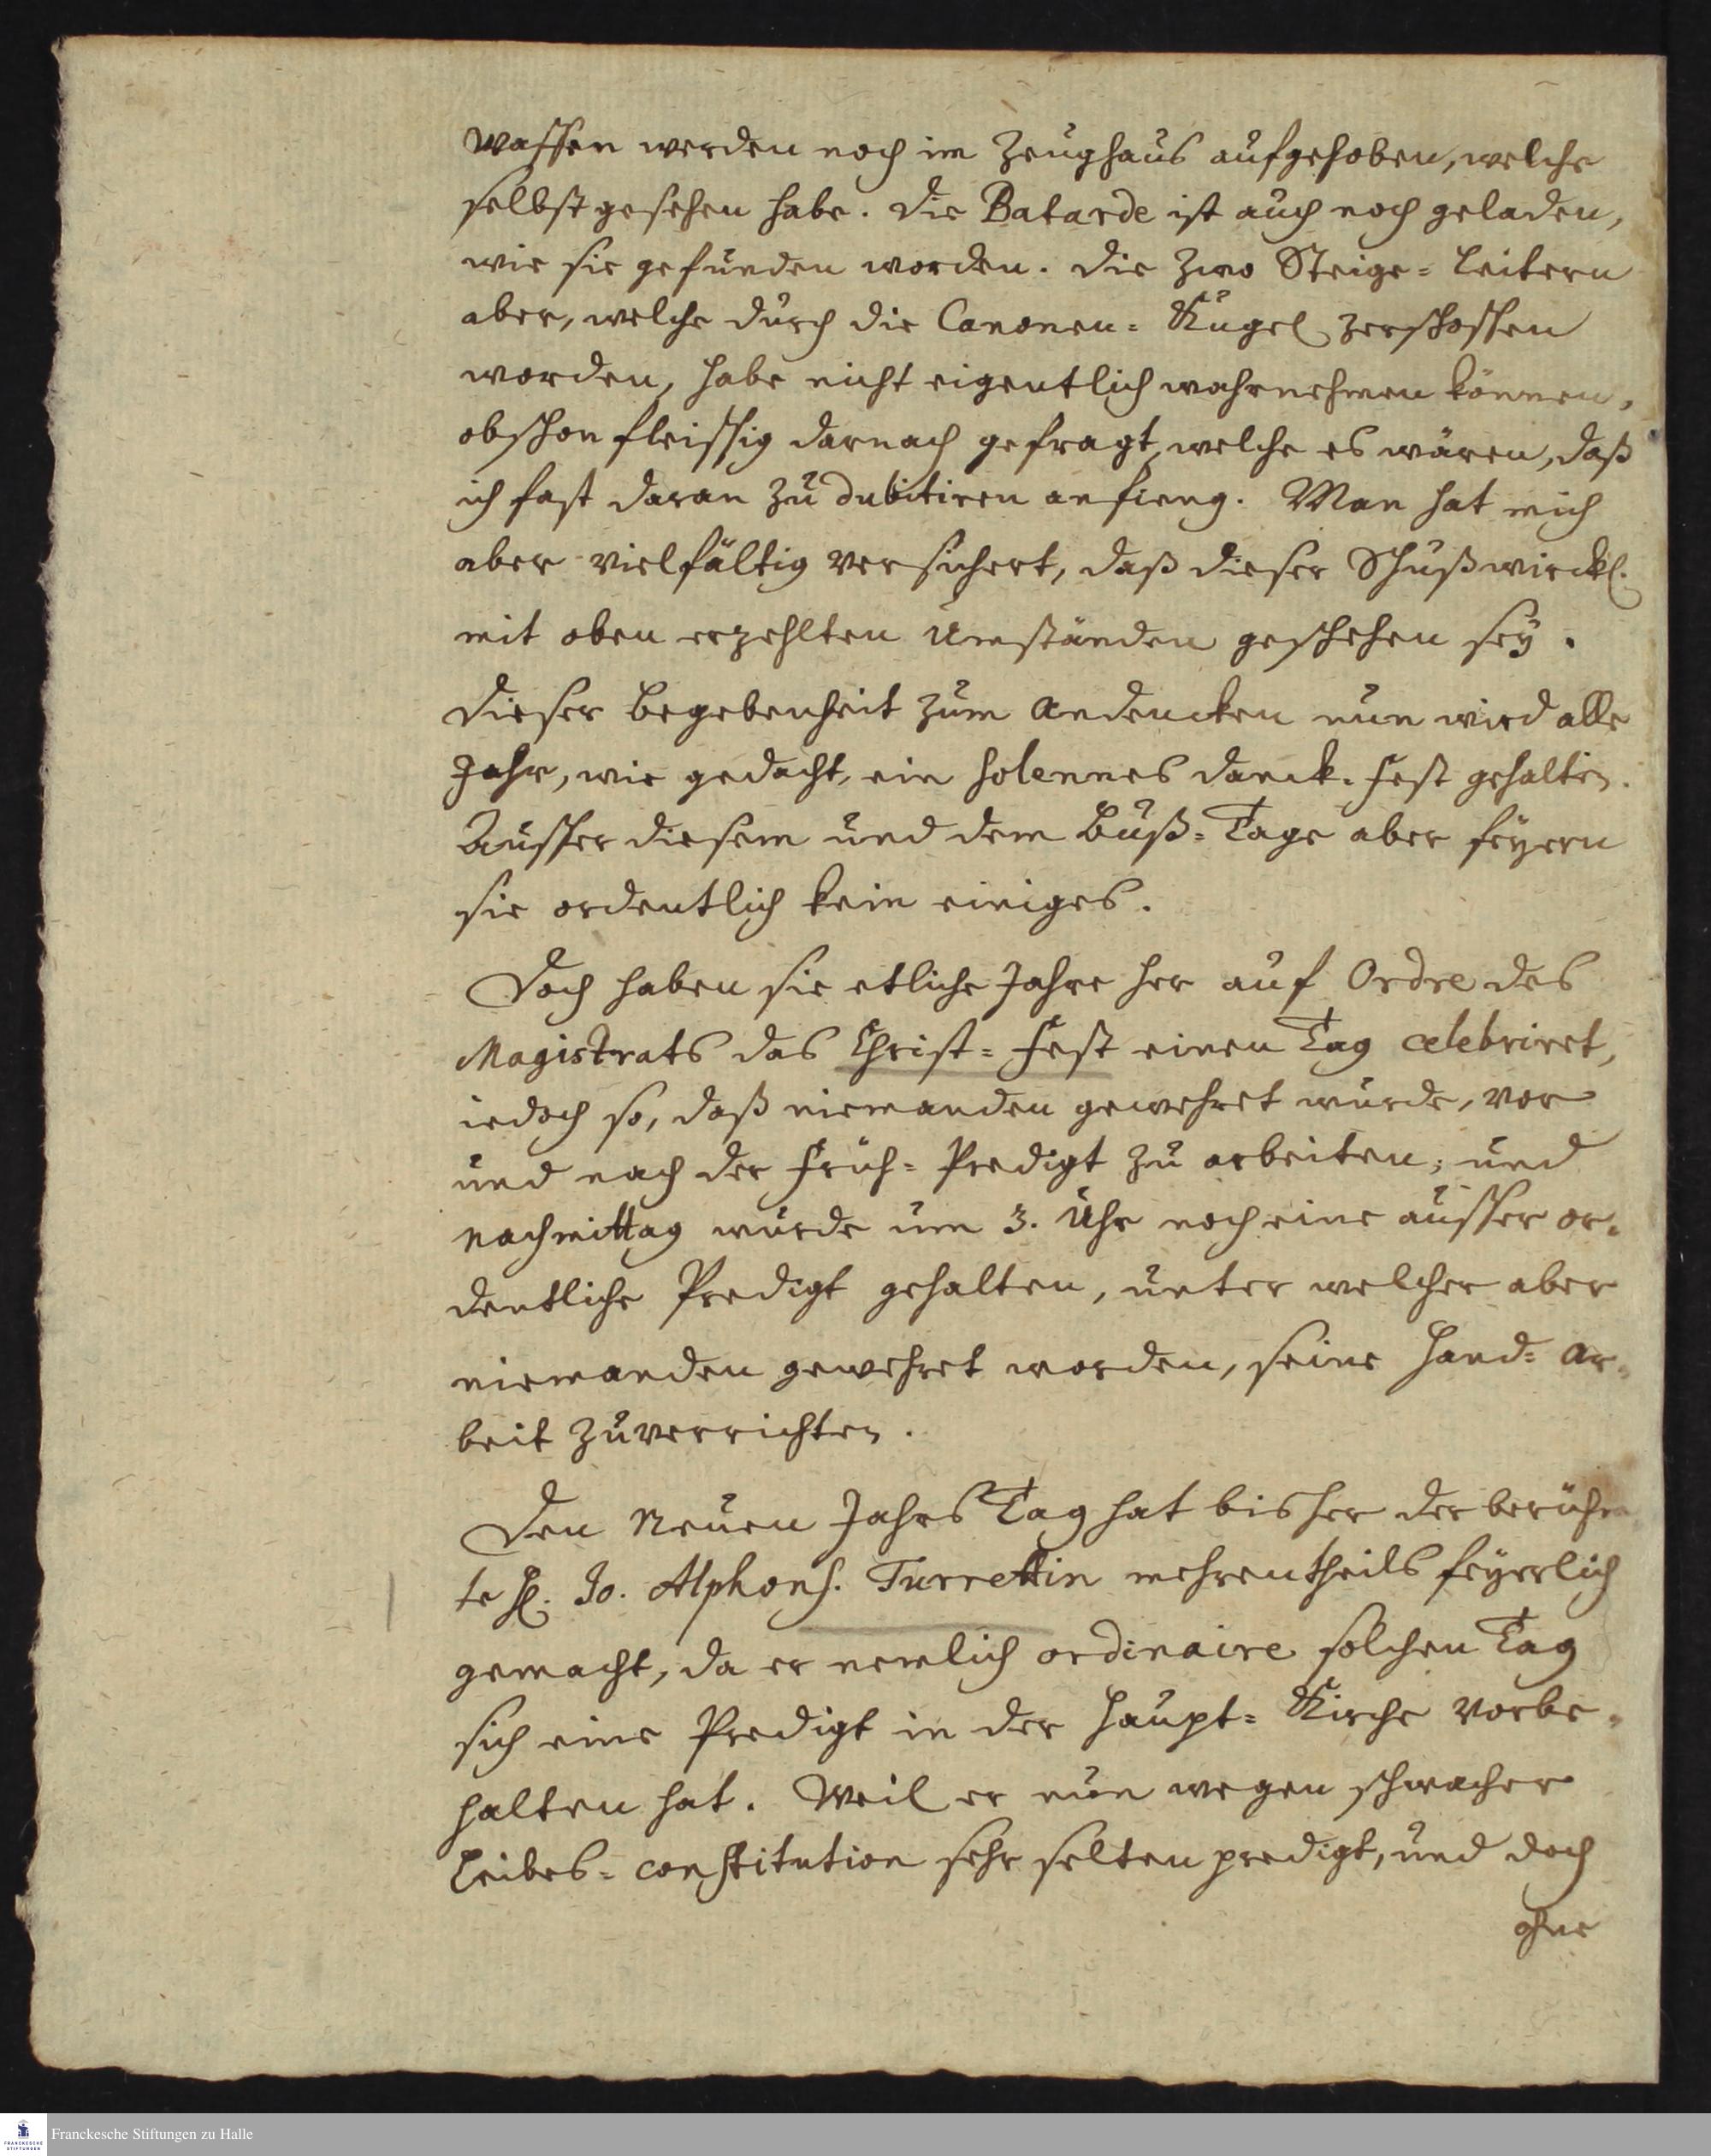 Waffen werden noch im Zeughaus aufgehoben, welche
selbst gesehen habe. Die Batarde ist auch noch geladen,
wie sie gefunden worden. Die zwo Steige= Leitern
aber, welche durch die Canonen= Kugel zerschossen
worden, habe nicht eigentlich wahrnehmen können,
obschon fleissig darnach gefragt, welche es wären, daß
ich fast daran zu dubitiren anfieng. Man hat mich
aber vielfältig versichert, daß dieser Schuß wirckl.
mit oben erzehlten Umständen geschehen sey.
Dieser Begebenheit zum Andencken nun wird alle
Jahr, wie gedacht, ein solennes Danck= Fest gehalten.
Ausser diesem und dem Buß= Tage aber feyern
sie ordentlich kein einiges.
Doch haben sie etliche Jahre her auf Ordre des
Magistrats das Christ= Fest einen Tag celebriret,
iedoch so, daß niemanden gewehret wurde, vor
und nach der Früh= Predigt zu arbeiten; und
Nachmittag wurde um 3. Uhr noch eine ausser or=
dentliche Predigt gehalten, unter welcher aber
niemanden gewehret worden, seine Hand= Ar=
beit zuverrichten.
Den Neuen Jahrs Tag hat bisher der berühm
te H. Jo. Alphons. Turrettin mehrentheils feyerlich
gemacht, da er nemlich ordinaire solchen Tag
sich eine Predigt in der Haupt= Kirche vorbe=
halten hat. Weil er nun wegen schwacher
Leibes= constitution sehr selten predigt, und doch
ohne
Franckesche Stiftungen zu Halle
FRANCKESCHE
STIFTUNGEN